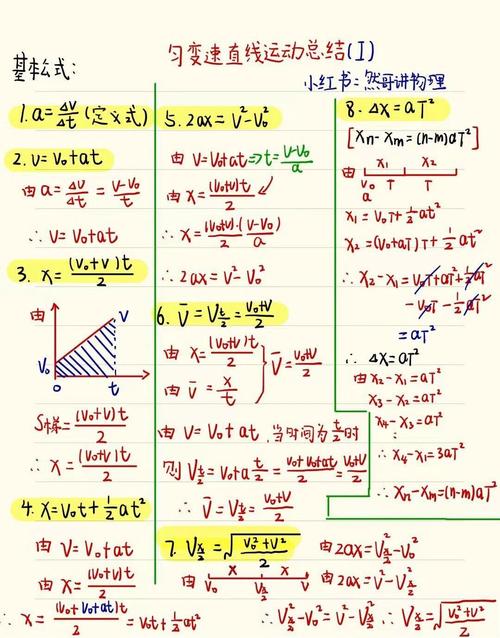 匀变速直线运动总结(I)
基本公式:
小红书:然哥讲物理
1. a = Δv/Δt (定义式)
2. v = v₀+at
由 a = Δv/Δt = (v-v₀)/t
∴ v = v₀+at
3. x = (v₀+v)t/2
由
v
v₀
0 t
S梯 = (v₀+v)t/2
∴ x = (v₀+v)t/2
4. x = v₀t + ½at²
由 v = v₀+at
由 x = (v₀+v)t/2
∴ x = (v₀+v₀+at)t/2 = v₀t + ½at²
5. 2ax = v²-v₀²
由 v = v₀+at ⇒ t = (v-v₀)/a
由 x = (v₀+v)t/2
∴ x = (v₀+v)/2·(v-v₀)/a
∴ 2ax = v²-v₀²
6. v̄ = v_{t/2} = (v₀+v)/2
由 x = (v₀+v)t/2
由 v̄ = x/t
} v̄ = (v₀+v)/2
由 v = v₀+at, 当时间为 t/2 时
则 v_{t/2} = v₀+a t/2 = (v₀+v₀+at)/2 = (v₀+v)/2
∴ v̄ = v_{t/2} = (v₀+v)/2
7. v_{x/2} = √((v₀²+v²)/2)
由
x x
v₀ v_{x/2} v
由 2ax = v_{x/2}²-v₀²
由 2ax = v²-v_{x/2}²
∴ v_{x/2}²-v₀² = v²-v_{x/2}² ∴ v_{x/2} = √((v₀²+v²)/2)
8. Δx = aT²
[xₙ-xₘ = (n-m)aT²]
由
x₁ x₂
v₀ T T
a
x₁ = v₀T + ½aT²
x₂ = (v₀+aT)T + ½aT²
∴ x₂-x₁ = v₀T+aT²+½aT²
-v₀T-½aT²
= aT²
∴ Δx = aT²
由 x₂-x₁ = aT²
x₃-x₂ = aT²
x₄-x₃ = aT²
∴ x₄-x₁ = 3aT²
∴ xₙ-xₘ = (n-m)aT²